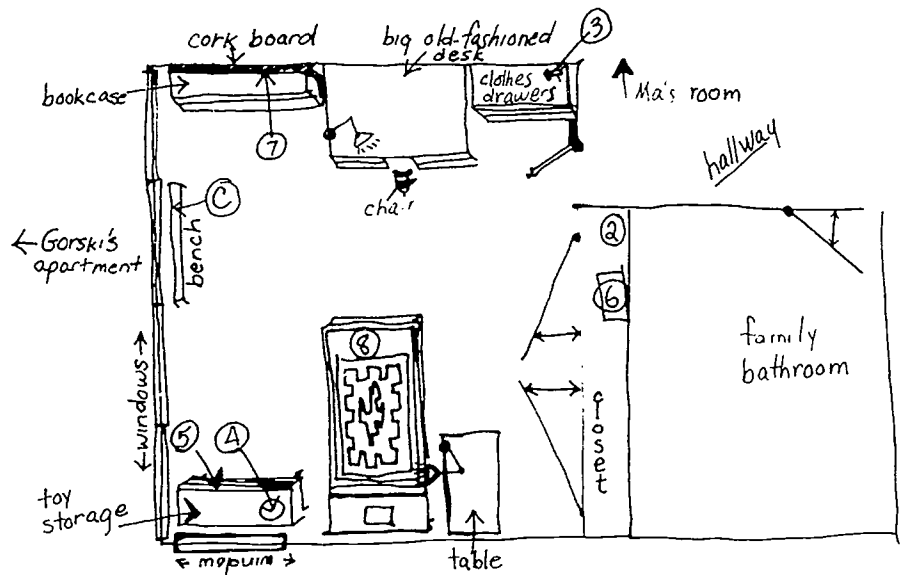 cork board
big old-fashioned
desk
3
clothes
drawers
Ma's room
bookcase
7
hallway
chair
C
bench
← Gorski's
apartment
2
6
family
bathroom
8
windows
closet
5
4
toy
storage
window
table